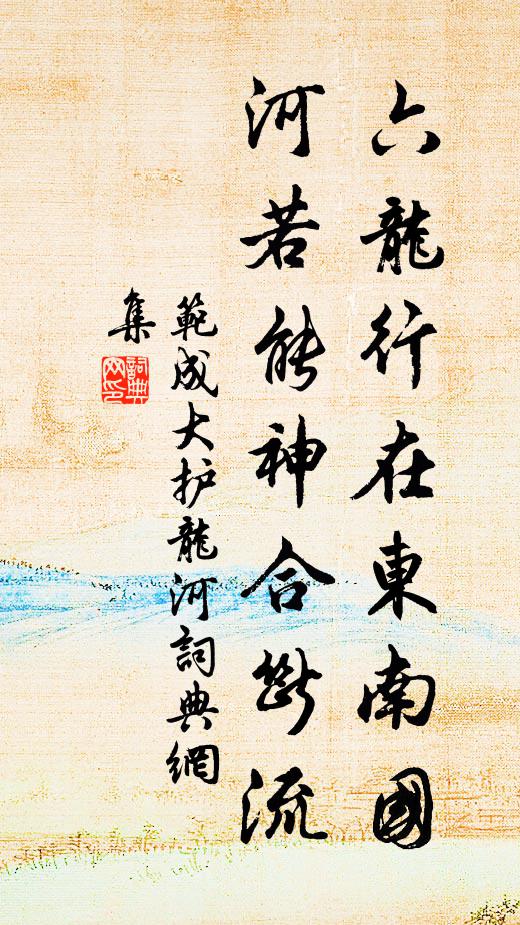 六龍行在東南國
河若能神合斷流
範成大护龍河詞典網
集
詞典
网印